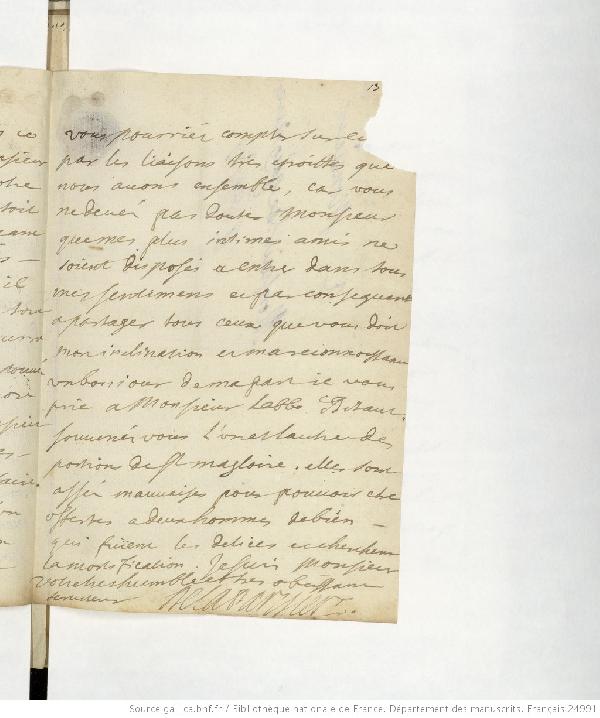 13
ce
vous pourriés compter sur le
par les liaisons tres etroittes que
nous auons ensemble, car vous
ne deués pas douter Monsieur
que mes plus intimes amis ne
soient disposés a entrer dans tous
mes sentimens et par consequent
a partager tous ceux que vous doit
mon inclination et ma reconnoissance
un bonjour de ma part je vous
prie a Monsieur l'abbé
souuenés vous l'un et l'autre des
portions de st magloire. elles sont
assés mauuaises pour pouuoir etre
offertes a deux hommes de bien –
qui fuient les delices et cherchent
la mortification. Je suis Monsieur
votre tres humble et tres obeissant
seruiteur
Source gallica.bnf.fr / Bibliothèque nationale de France. Département des manuscrits. Français 24991